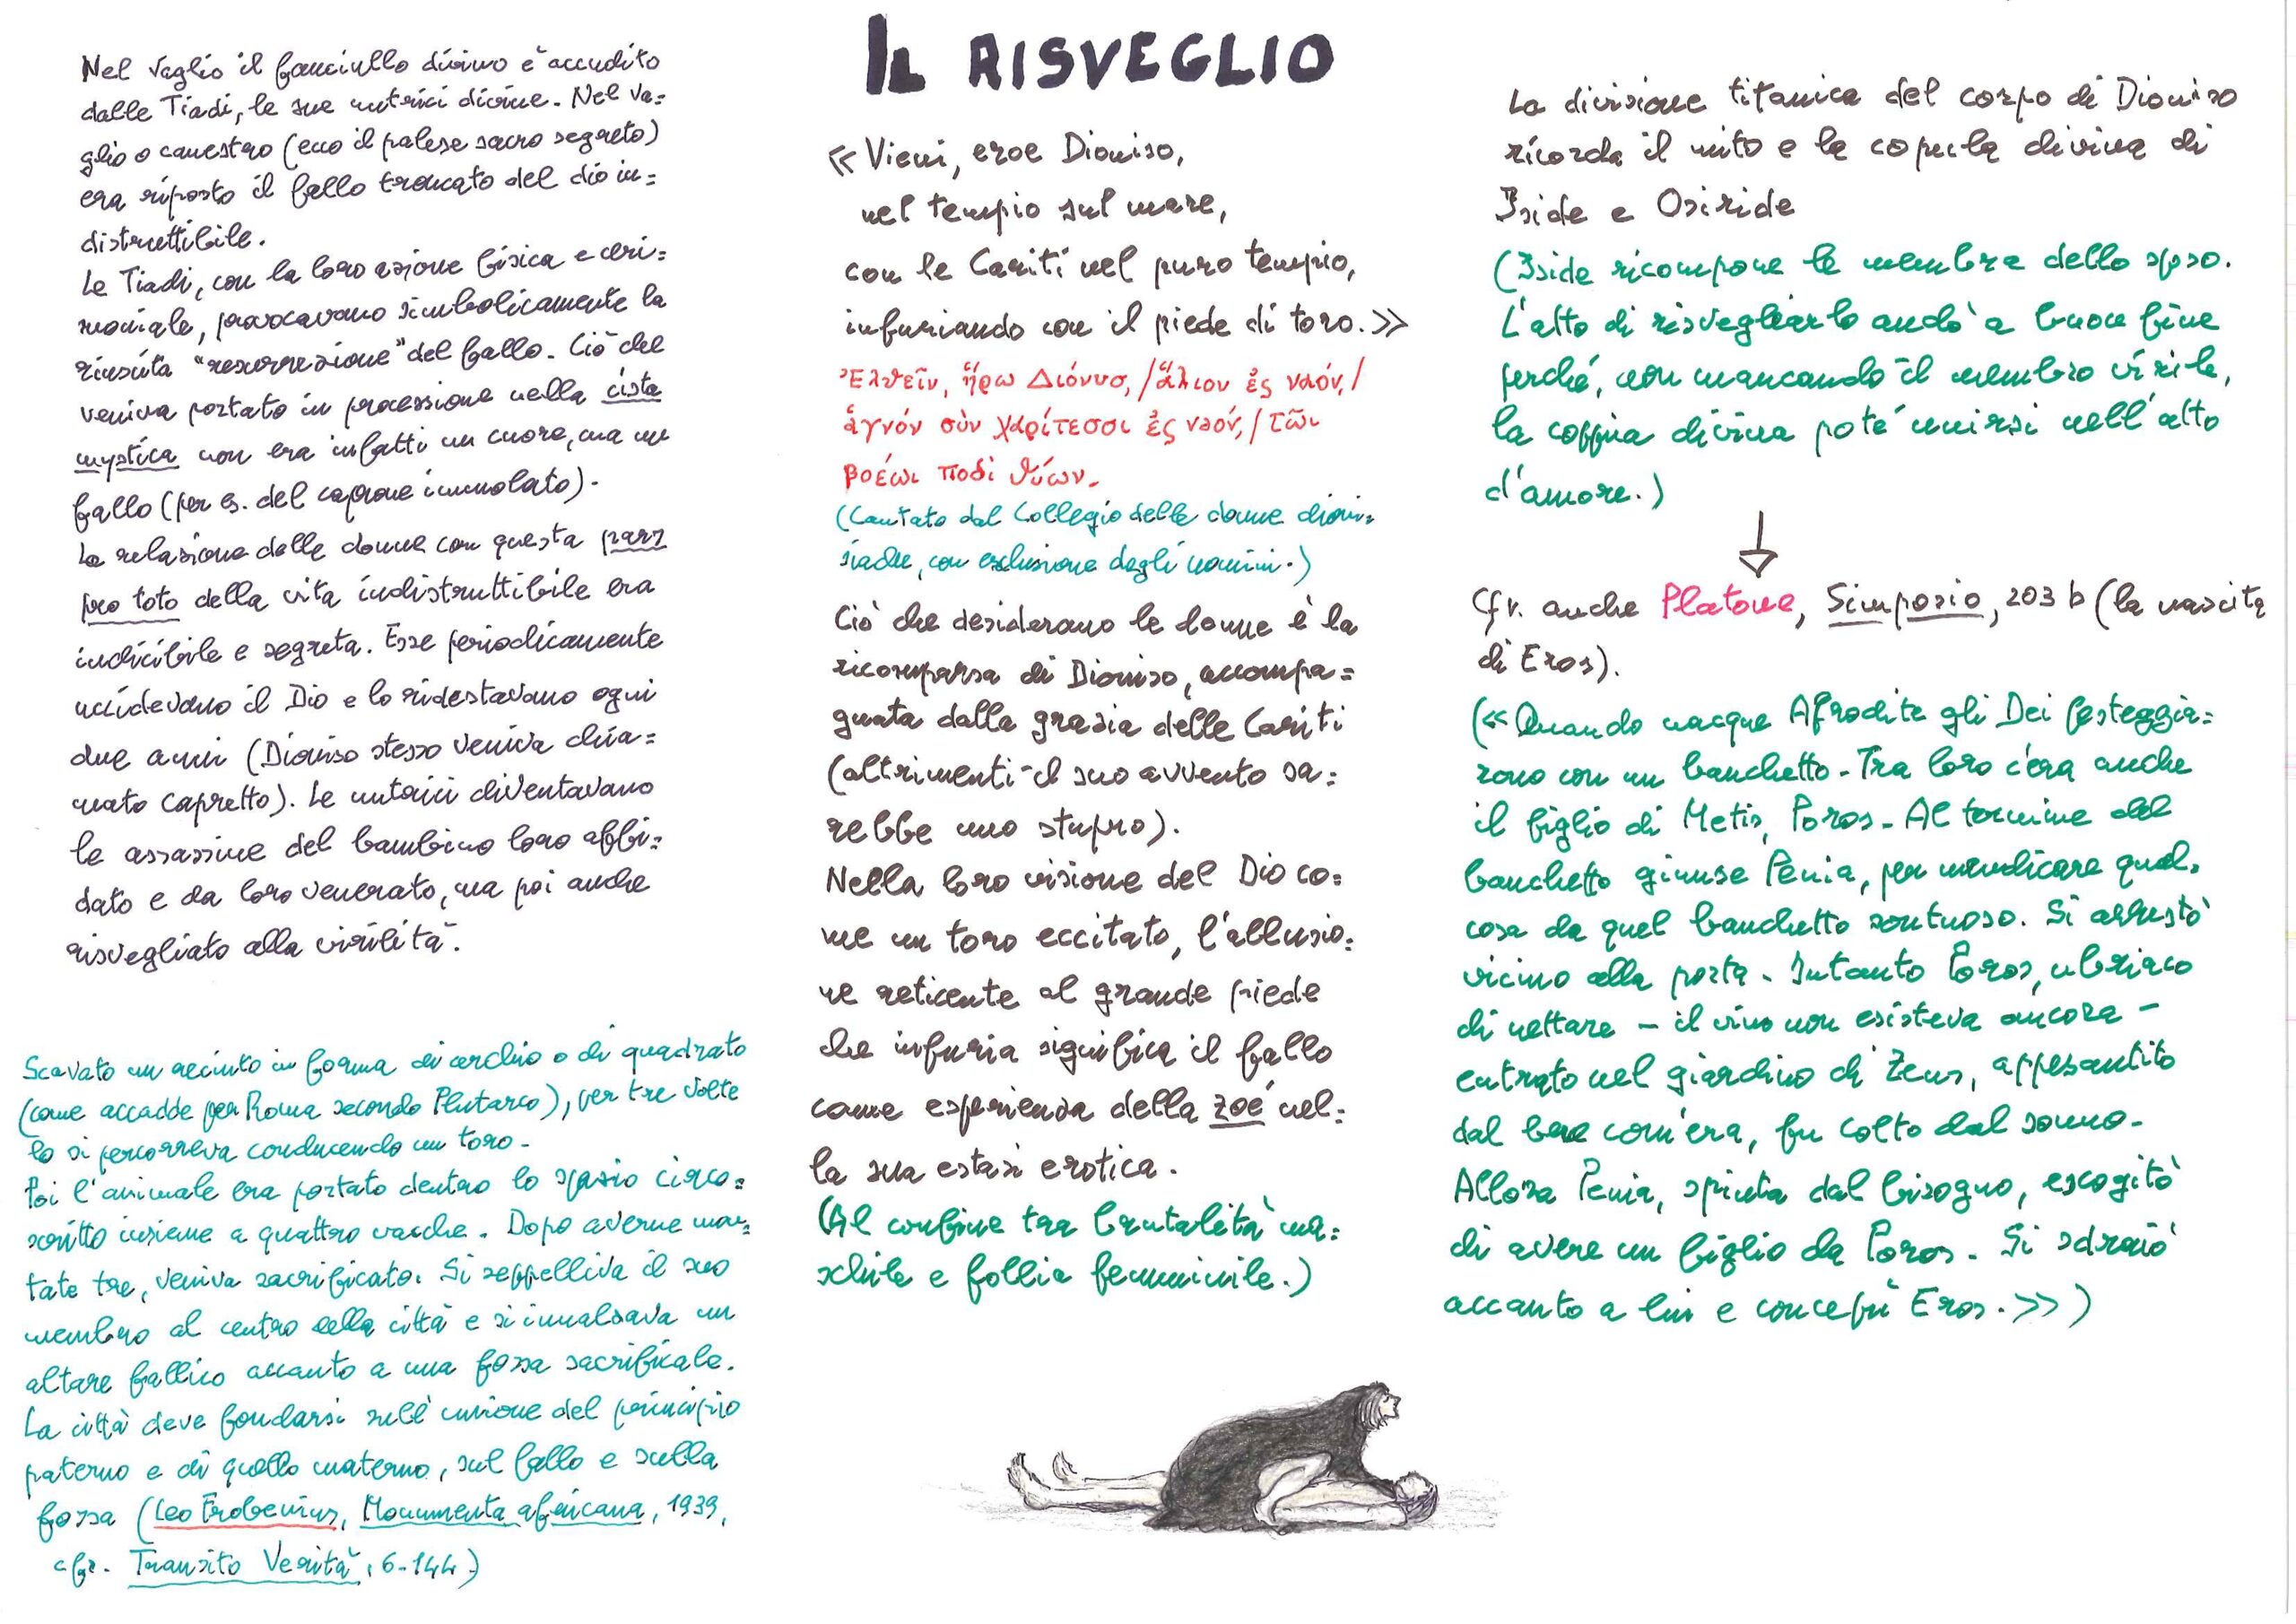 Nel vaglio il fanciullo divino è accudito
dalle Tiadi, le sue nutrici divine. Nel va=
glio o canestro (ecco il palese sacro segreto)
era riposto il fallo troncato del dio in=
distruttibile.
Le Tiadi, con la loro azione fisica e ceri=
moniale, provocavano simbolicamente la
riuscita "resurrezione" del fallo. Ciò che
veniva portato in processione nella cista
mystica non era infatti un cuore, ma un
fallo (per es. del caprone immolato).
La relazione delle donne con questa pars
pro toto della vita indistruttibile era
indicibile e segreta. Esse periodicamente
uccidevano il Dio e lo ridestavano ogni
due anni (Dioniso stesso veniva chia=
mato capretto). Le nutrici diventavano
le assassine del bambino loro affi=
dato e da loro venerato, ma poi anche
risvegliato alla virilità.
Scavato un recinto in forma di cerchio o di quadrato
(come accadde per Roma secondo Plutarco), per tre volte
lo si percorreva conducendo un toro.
Poi l'animale era portato dentro lo spazio circo=
scritto insieme a quattro vacche. Dopo averne mon=
tate tre, veniva sacrificato. Si seppelliva il suo
membro al centro della città e si innalzava un
altare fallico accanto a una fossa sacrificale.
La città deve fondarsi sull'unione del principio
paterno e di quello materno, sul fallo e sulla
fossa (Leo Frobenius, Monumenta africana, 1939,
cfr. Transito Verità, 6-144)
IL RISVEGLIO
«Vieni, eroe Dioniso,
nel tempio sul mare,
con le Cariti nel puro tempio,
infuriando con il piede di toro.»
Ἐλθεῖν, ἥρω Διόνυσ, /ἅλιον ἐς ναόν,/
ἁγνόν σὺν χαρίτεσσι ἐς ναόν,/τῶι
βοέωι ποδὶ θύων.
(Cantato dal Collegio delle donne dioni=
siache, con esclusione degli uomini.)
Ciò che desiderano le donne è la
ricomparsa di Dioniso, accompa=
gnata dalla grazia delle Cariti
(altrimenti il suo avvento sa=
rebbe uno stupro).
Nella loro visione del Dio co=
me un toro eccitato, l'allusio=
ne reticente al grande piede
che infuria significa il fallo
come esperienza della zoé nel=
la sua estasi erotica.
(Al confine tra brutalità ma=
schile e follia femminile.)
La divisione titanica del corpo di Dioniso
ricorda il mito e la copula divina di
Iside e Osiride
(Iside ricompone le membra dello sposo.
L'atto di risvegliarlo andò a buon fine
perché, non mancando il membro virile,
la coppia divina poté unirsi nell'atto
d'amore.)
Cfr. anche Platone, Simposio, 203 b (la nascita
di Eros).
(«Quando nacque Afrodite gli Dei festeggia=
rono con un banchetto. Tra loro c'era anche
il figlio di Metis, Poros. Al termine del
banchetto giunse Penia, per mendicare qual=
cosa da quel banchetto sontuoso. Si arrestò
vicino alla porta. Intanto Poros, ubriaco
di nettare – il vino non esisteva ancora –
entrato nel giardino di Zeus, appesantito
dal bere com'era, fu colto dal sonno.
Allora Penia, spinta dal bisogno, escogitò
di avere un figlio da Poros. Si sdraiò
accanto a lui e concepì Eros.»)